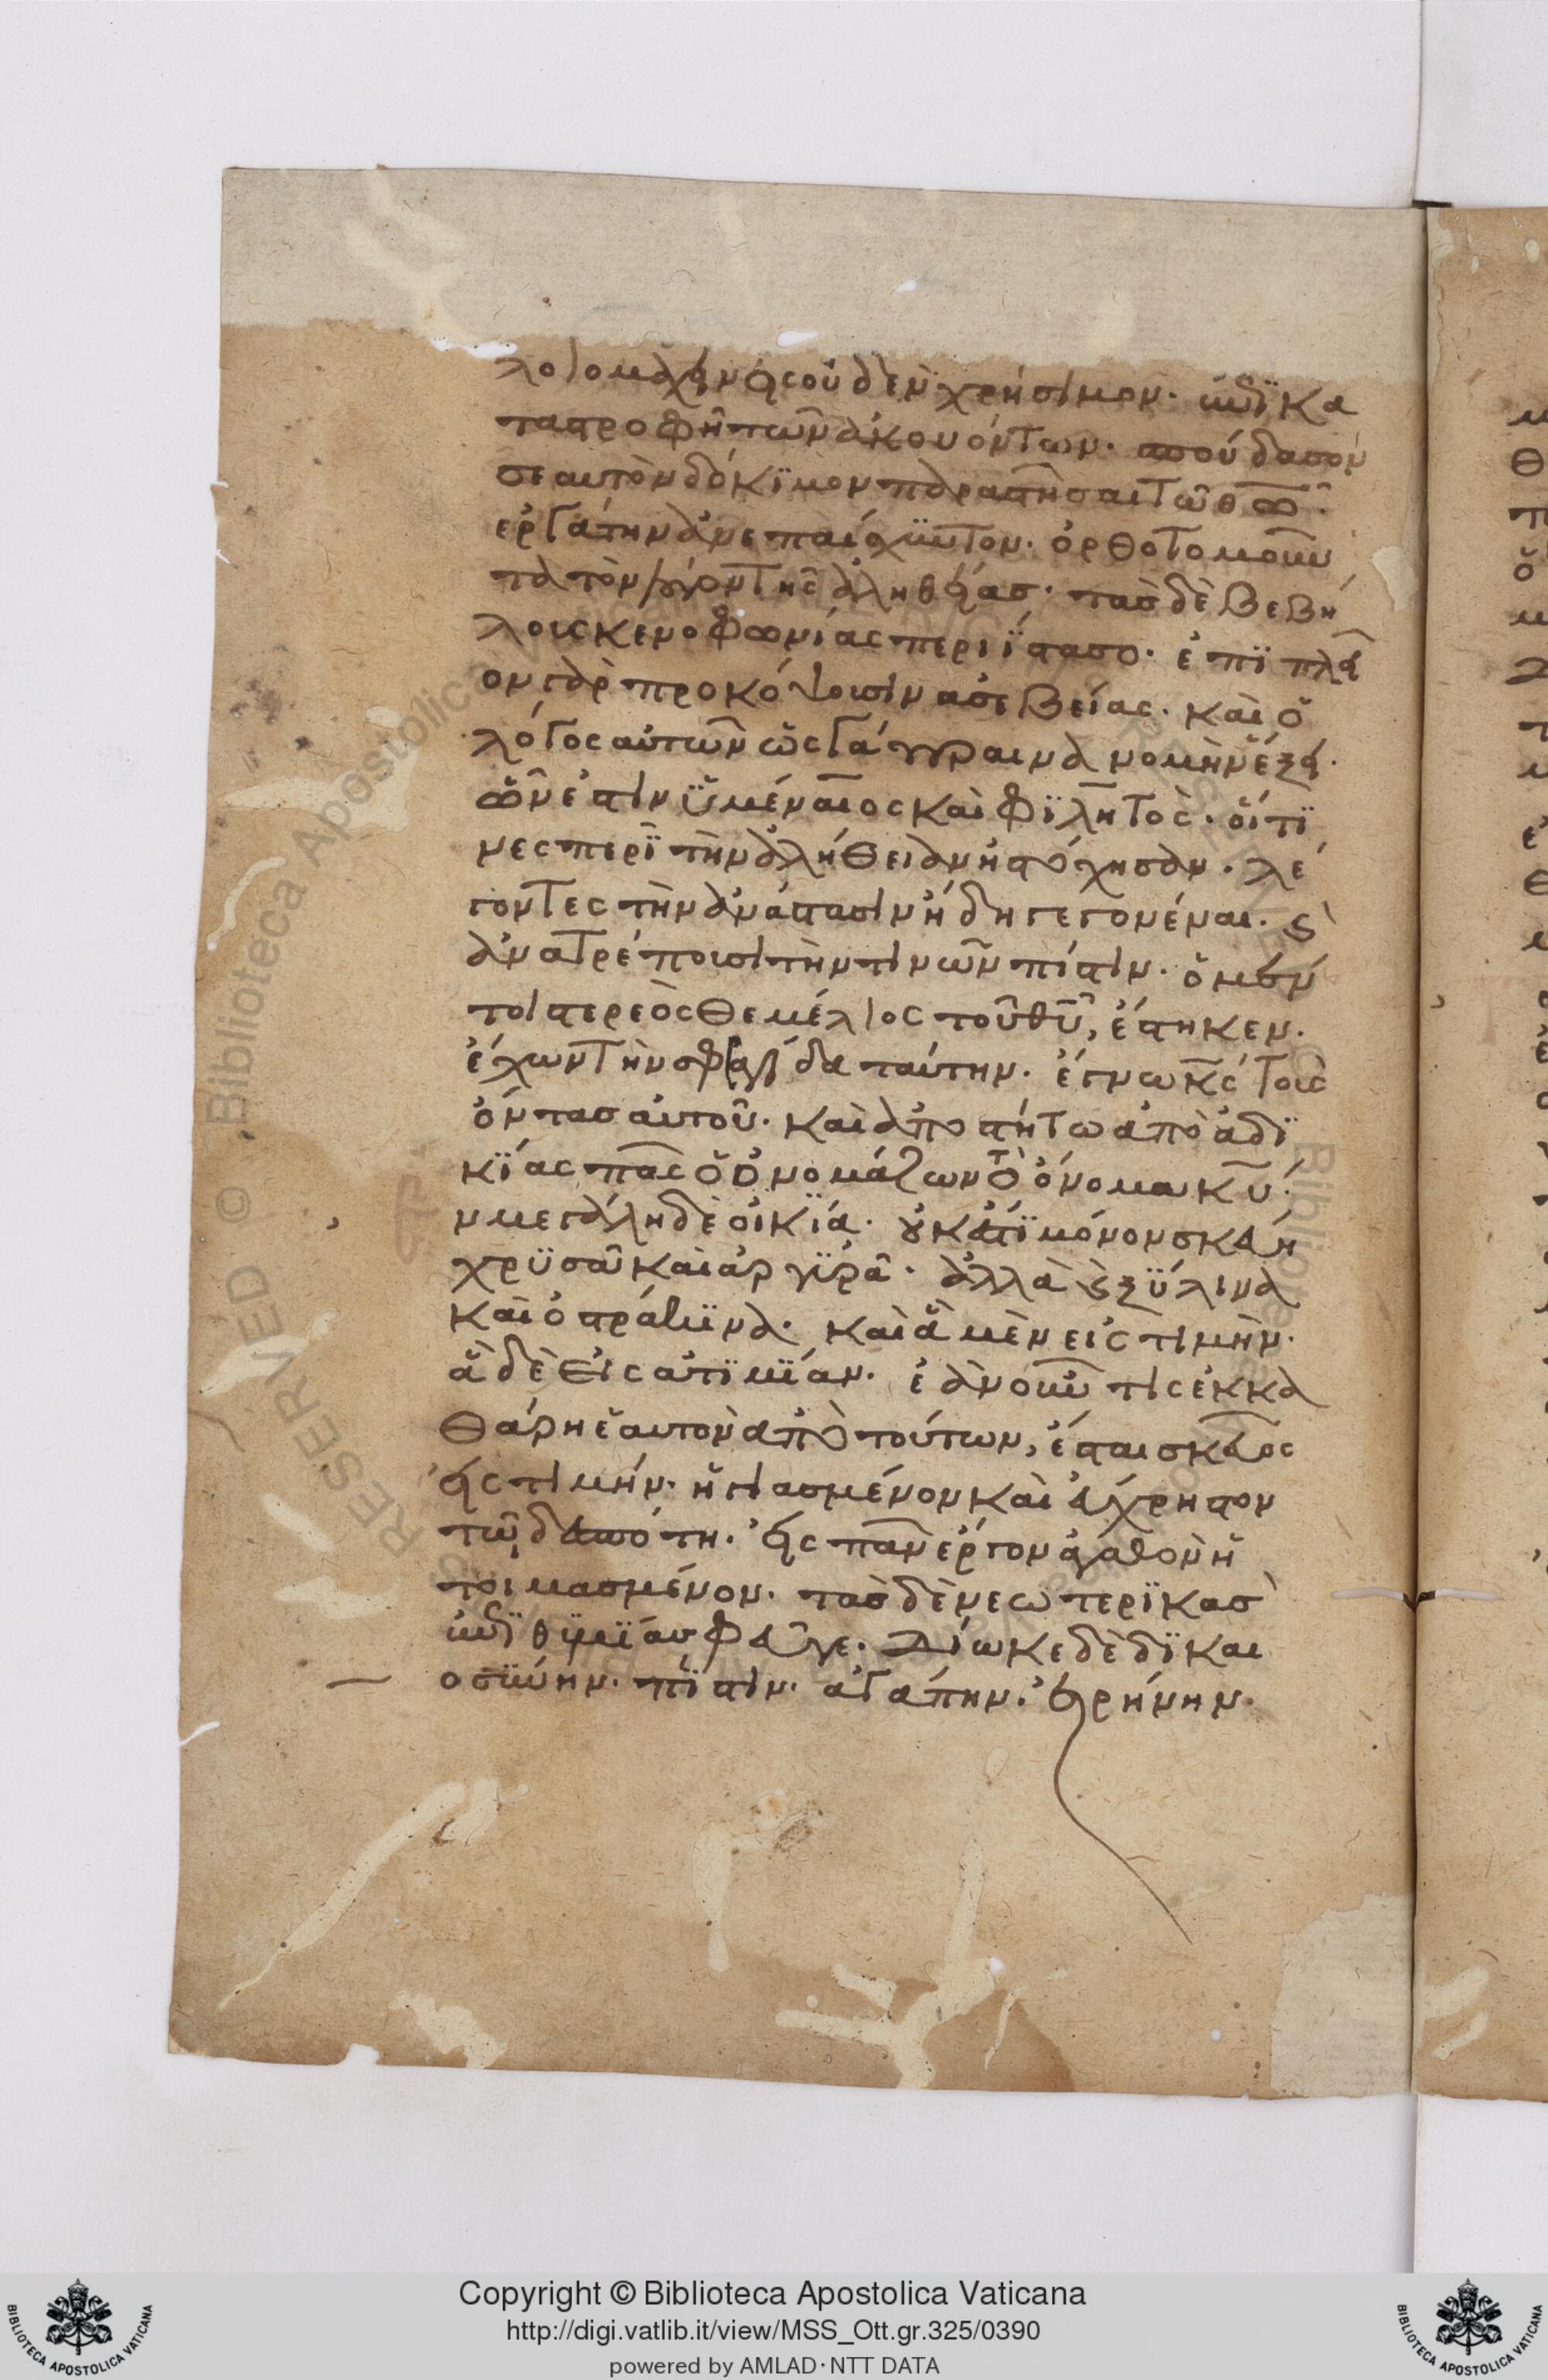 λογομαχεῖν εἰς οὐδὲν χρήσιμον· ἐπὶ κα
ταστροφῆ τῶν ἀκουόντων· σπούδασον
σεαυτὸν δόκϊμον παραστῆσαι τῶ θῶ·
ἐργάτην ἀνεπαίσχϋντον· ὀρθοτομοῦν
τα τὸν λόγον τῆς ἀληθείας· τὰσ δὲ βεβή
λους κενοφωνίας περιΐστασο· ἐπϊ πλεῖ
ον γὰρ προκόψουσιν ἀσεβείας· καὶ ὁ
λόγος αὐτῶν ὡς γάγγραινα νομὴν ἕξει·
ὧν ἐστὶν ὑμέναιος καὶ φϊλητὸς· οἵτϊ
νες περῒ τὴν ἀλήθειαν ἠστόχησαν· λέ
γοντες τὴν ἀνάστασιν ἤδη γεγονέναι· ϗ
ἀνατρέπουσι τὴν τινῶν πίστιν· ὁ μέν
τοι στερεὸς θεμέλιος τοῦ θῦ, ἕστηκεν·
ἔχων τὴν σφραγῖδα ταύτην· ἔγνω κς τοὺς
ὄντασ αὐτοῦ· καὶ ἀποστήτω ἀπὸ ἀδϊ
κΐας πᾶς ὁ ὀνομάζων τὸ ὄνομα κυ·
ν μεγάλη δὲ οἰκΐα· οὐκ ἔστϊ μόνον σκεύη
χρϋσᾶ καὶ ἀργϋρᾶ· ἀλλὰ ϗ ξϋλινα
καὶ ὀστράκϊνα· καὶ ἃ μὲν εἰς τιμὴν·
ἃ δὲ εἰς ἀτϊμΐαν· ἐὰν οὖν τὶς ἐκκα
θάρη ἑαυτὸν ἀπὸ τούτων, ἔσται σκεῦος
εἰς τιμήν· ἡγιασμένον καὶ εὔχρηστον
τῶ δεσπότη· εἰς πᾶν ἔργον ἀγαθὸν ἡ
τοιμασμένον· τὰσ δὲ νεωτερϊκὰσ
ἐπϊθϋμΐασ φεῦγε· δίωκε δὲ δϊκαι
οσϋνην· πΐστιν· ἀγάπην· εἰρήνην·
Copyright © Biblioteca Apostolica Vaticana
http://digi.vatlib.it/view/MSS_Ott.gr.325/0390
powered by AMLAD·NTT DATA